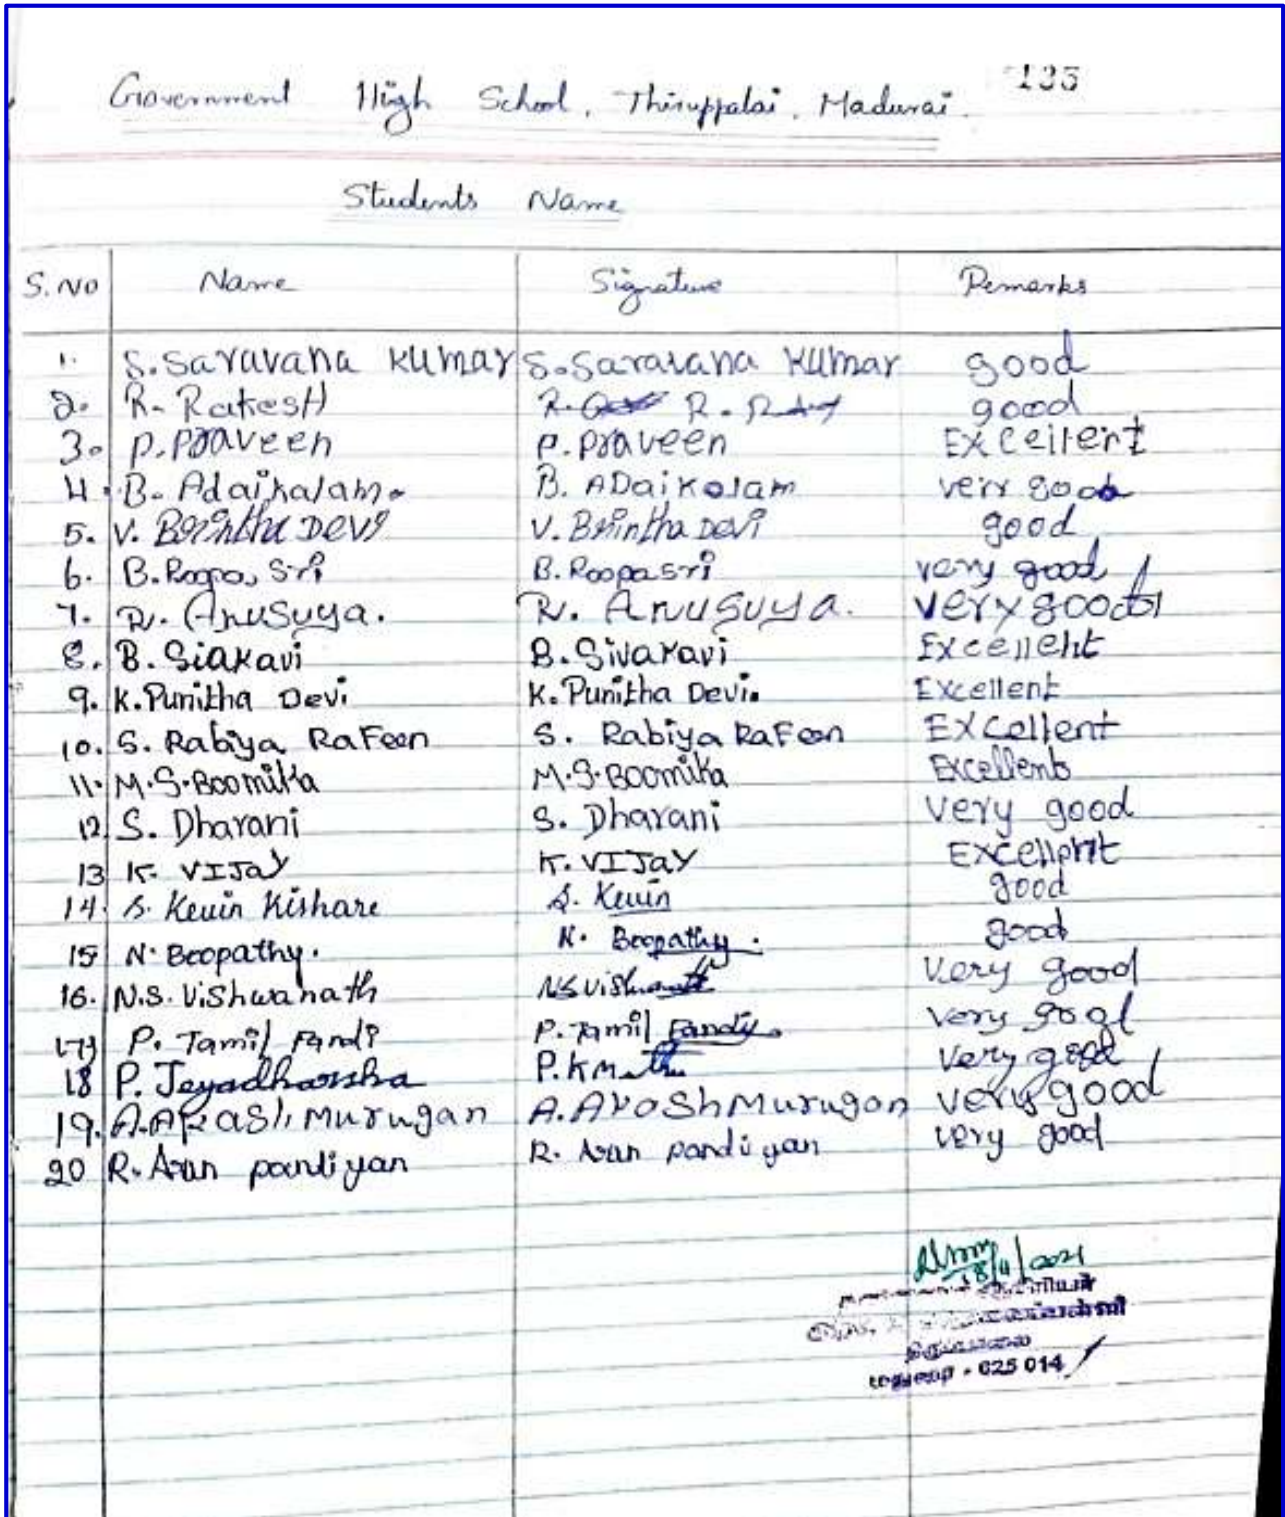 135
Government High School, Thiruppalai, Madurai.
Students Name
S.No Name Signature Remarks
1. S. Saravana Kumar S. Saravana Kumar good
2. R. Rakesh R. R. good
3. P. Praveen P. Praveen Excellent
4. B. Adaikalam. B. ADaikolam very good
5. V. Brintha Devi V. Brintha Devi good
6. B. Roopa Sri B. Roopasri very good
7. R. Anusuya. R. Anusuya. very good
8. B. Siakavi B. Sivakavi Excellent
9. K. Punitha Devi K. Punitha Devi. Excellent
10. S. Rabiya Rafeen S. Rabiya Rafeen Excellent
11. M.S. Boomika M.S. Boomika Excellent
12 S. Dharani S. Dharani very good
13 K. VIJay K. VIJay Excellent
14. S. Kevin Kishare S. Kevin good
15 N. Boopathy. N. Boopathy. good
16. N.S. Vishwanath N.S Vishwanath Very good
17) P. Tamil Pandi P. Tamil Pandy. very good
18 P. Jeyadharsha P.K very good
19. A. Akash Murugan A. Akash Murugan very good
20 R. Arun pandiyan R. Arun pandiyan very good
18/11/2021
மதுரை - 625 014